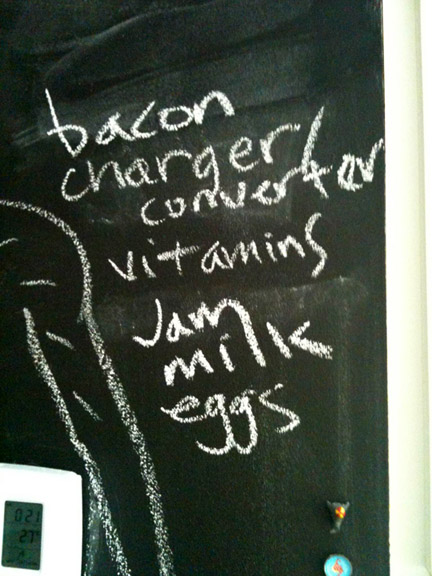 bacon
charger/
converter
vitamins
Jam
milk
eggs